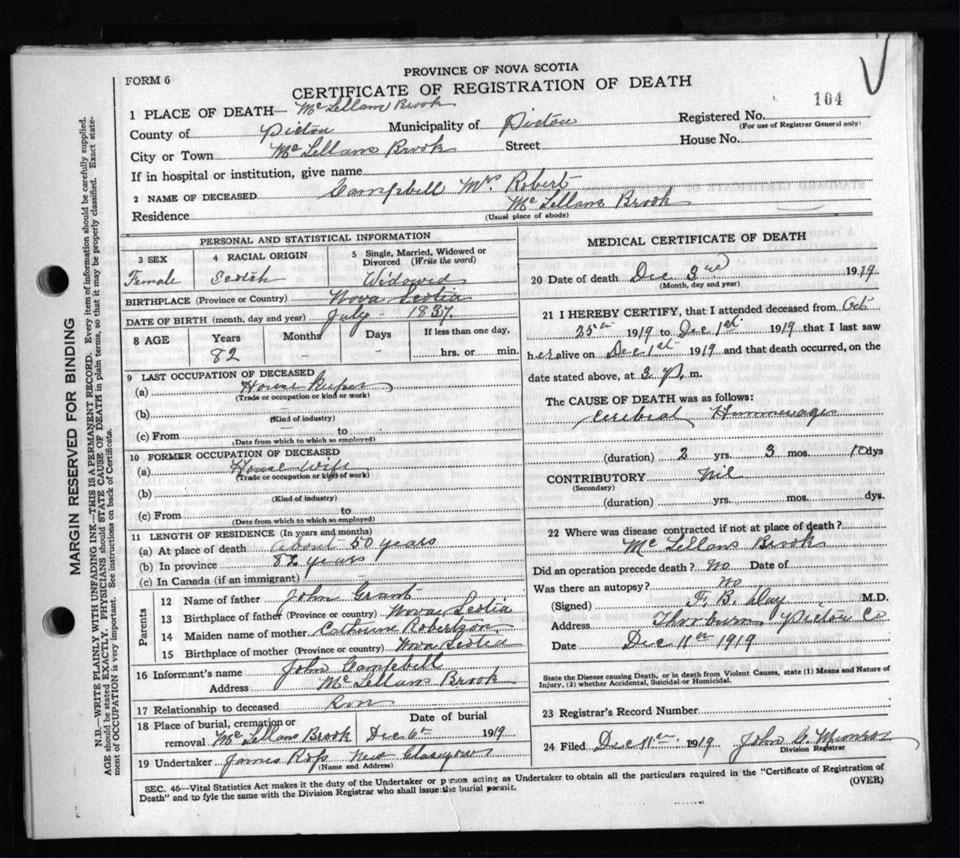 PROVINCE OF NOVA SCOTIA
FORM 6
CERTIFICATE OF REGISTRATION OF DEATH
104
1 PLACE OF DEATH— Mc Lellans Brook
Registered No.
(For use of Registrar General only)
County of Pictou Municipality of Pictou
City or Town Mc Lellans Brook Street House No.
If in hospital or institution, give name
2 NAME OF DECEASED Campbell Mrs Robert
Residence Mc Lellans Brook
(Usual place of abode)
PERSONAL AND STATISTICAL INFORMATION
3 SEX 4 RACIAL ORIGIN 5 Single, Married, Widowed or Divorced (Write the word)
Female Scotch Widowed
BIRTHPLACE (Province or Country) Nova Scotia
DATE OF BIRTH (month, day and year) July - 1837.
8 AGE Years Months Days If less than one day,
82 - - hrs. or min.
9 LAST OCCUPATION OF DECEASED
(a) House Keeper
(Trade or occupation or kind or work)
(b)
(Kind of industry)
(c) From to
(Date from which to which so employed)
10 FORMER OCCUPATION OF DECEASED
(a) House Wife
(Trade or occupation or kind of work)
(b)
(Kind of industry)
(c) From to
(Date from which to which so employed)
11 LENGTH OF RESIDENCE (In years and months)
(a) At place of death about 50 years
(b) In province 82 years
(c) In Canada (if an immigrant)
Parents
12 Name of father John Grant
13 Birthplace of father (Province or country) Nova Scotia
14 Maiden name of mother Catherine Robertson
15 Birthplace of mother (Province or country) Nova Scotia
16 Informant's name John Campbell
Address Mc Lellans Brook
17 Relationship to deceased Son
18 Place of burial, cremation or removal Mc Lellans Brook Date of burial Dec 6th 1919
19 Undertaker James Ross New Glasgow
(Name and Address)
MEDICAL CERTIFICATE OF DEATH
20 Date of death Dec 3rd 1919.
(Month, day and year)
21 I HEREBY CERTIFY, that I attended deceased from Oct
25th 1919 to Dec 1st 1919 that I last saw
her alive on Dec 1st 1919 and that death occurred, on the
date stated above, at 3 p. m.
The CAUSE OF DEATH was as follows:
Cerebral Hemmorage
(duration) 2 yrs. 3 mos. 10 dys
CONTRIBUTORY Nil
(Secondary)
(duration) yrs. mos. dys.
22 Where was disease contracted if not at place of death?
Mc Lellans Brook
Did an operation precede death? No Date of
Was there an autopsy? No
(Signed) F. B. Day M.D.
Address Thorburn Pictou Co
Date Dec 11th 1919
State the Disease Causing Death, or in death from Violent Causes, state (1) Means and Nature of
Injury, (2) whether Accidental, Suicidal or Homicidal.
23 Registrar's Record Number
24 Filed Dec 11th 1919 John C.
Division Registrar
SEC. 46—Vital Statistics Act makes it the duty of the Undertaker or person acting as Undertaker to obtain all the particulars required in the "Certificate of Registration of
Death" and to fyle the same with the Division Registrar who shall issue the burial permit.
(OVER)
MARGIN RESERVED FOR BINDING
N.B.—WRITE PLAINLY WITH UNFADING INK—THIS IS A PERMANENT RECORD. Every item of information should be carefully supplied.
AGE should be stated EXACTLY. PHYSICIANS should STATE CAUSE OF DEATH in plain terms, so that it may be properly classified. Exact state-
ment of OCCUPATION is very important. See instructions on back of Certificate.